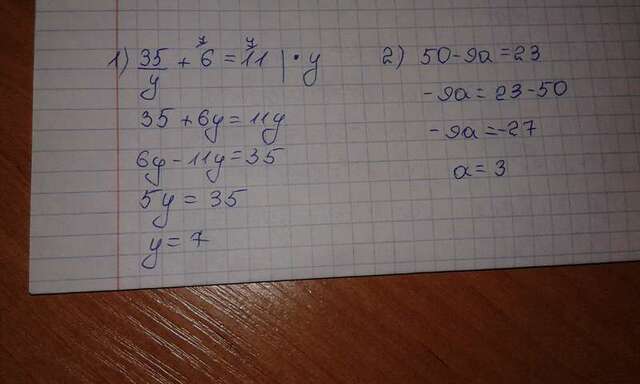 1) 35/y + 6 = 11 | · y
35 + 6y = 11y
6y - 11y = 35
5y = 35
y = 7
2) 50 - 9a = 23
-9a = 23 - 50
-9a = -27
a = 3